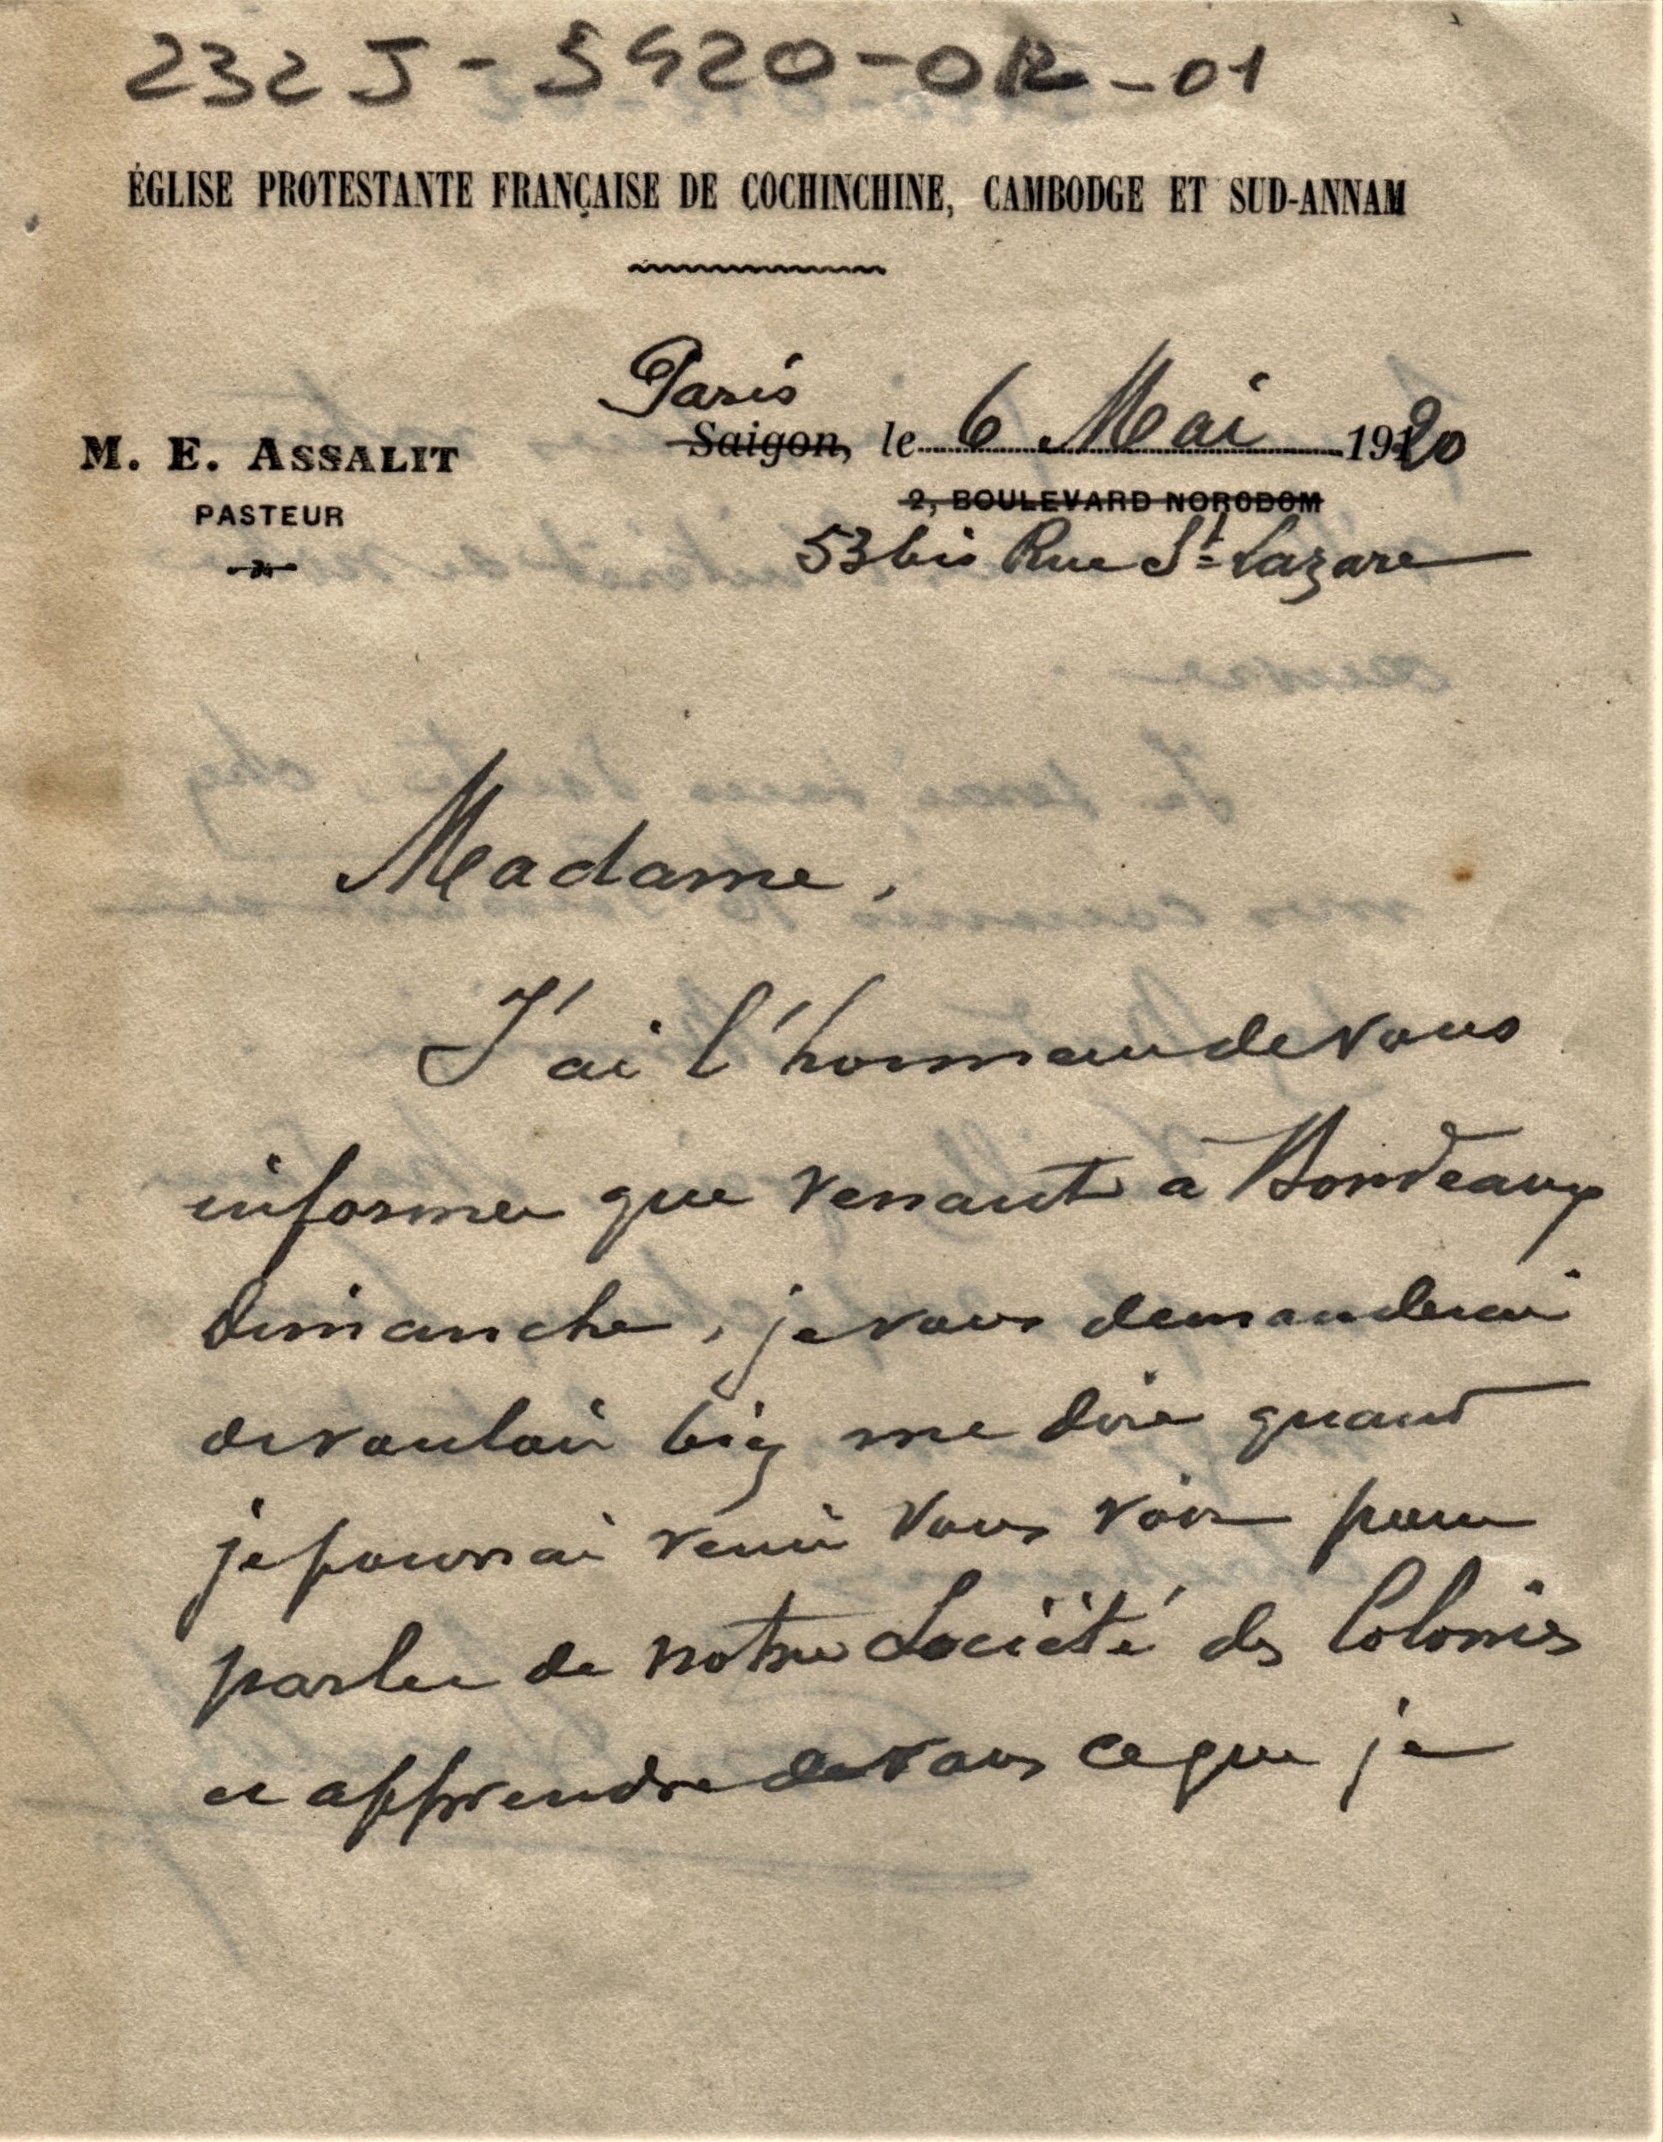 232 J - 5920 - OR - 01
ÉGLISE PROTESTANTE FRANÇAISE DE COCHINCHINE, CAMBODGE ET SUD-ANNAM
Paris
Saigon, le 6 Mai 1920
M. E. ASSALIT
PASTEUR
2, BOULEVARD NORODOM
53 bis Rue St Lazare
Madame,
J'ai l'honneur de vous
informer que venant à Bordeaux
Dimanche, je vous demanderai
de vouloir bien me dire quand
je pourrai venir vous voir pour
parler de notre Société des Colonies
et apprendre de vous ce que je